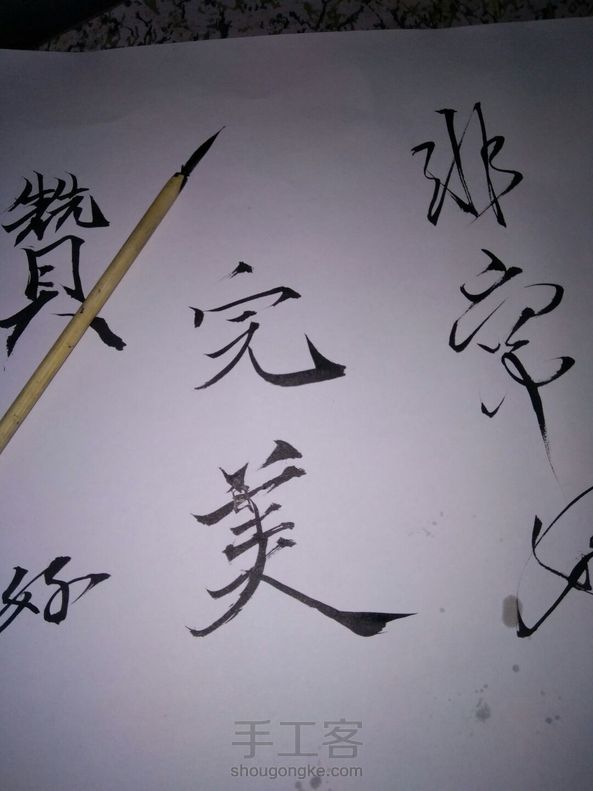 非常好
完美
赞好
手工客
shougongke.com